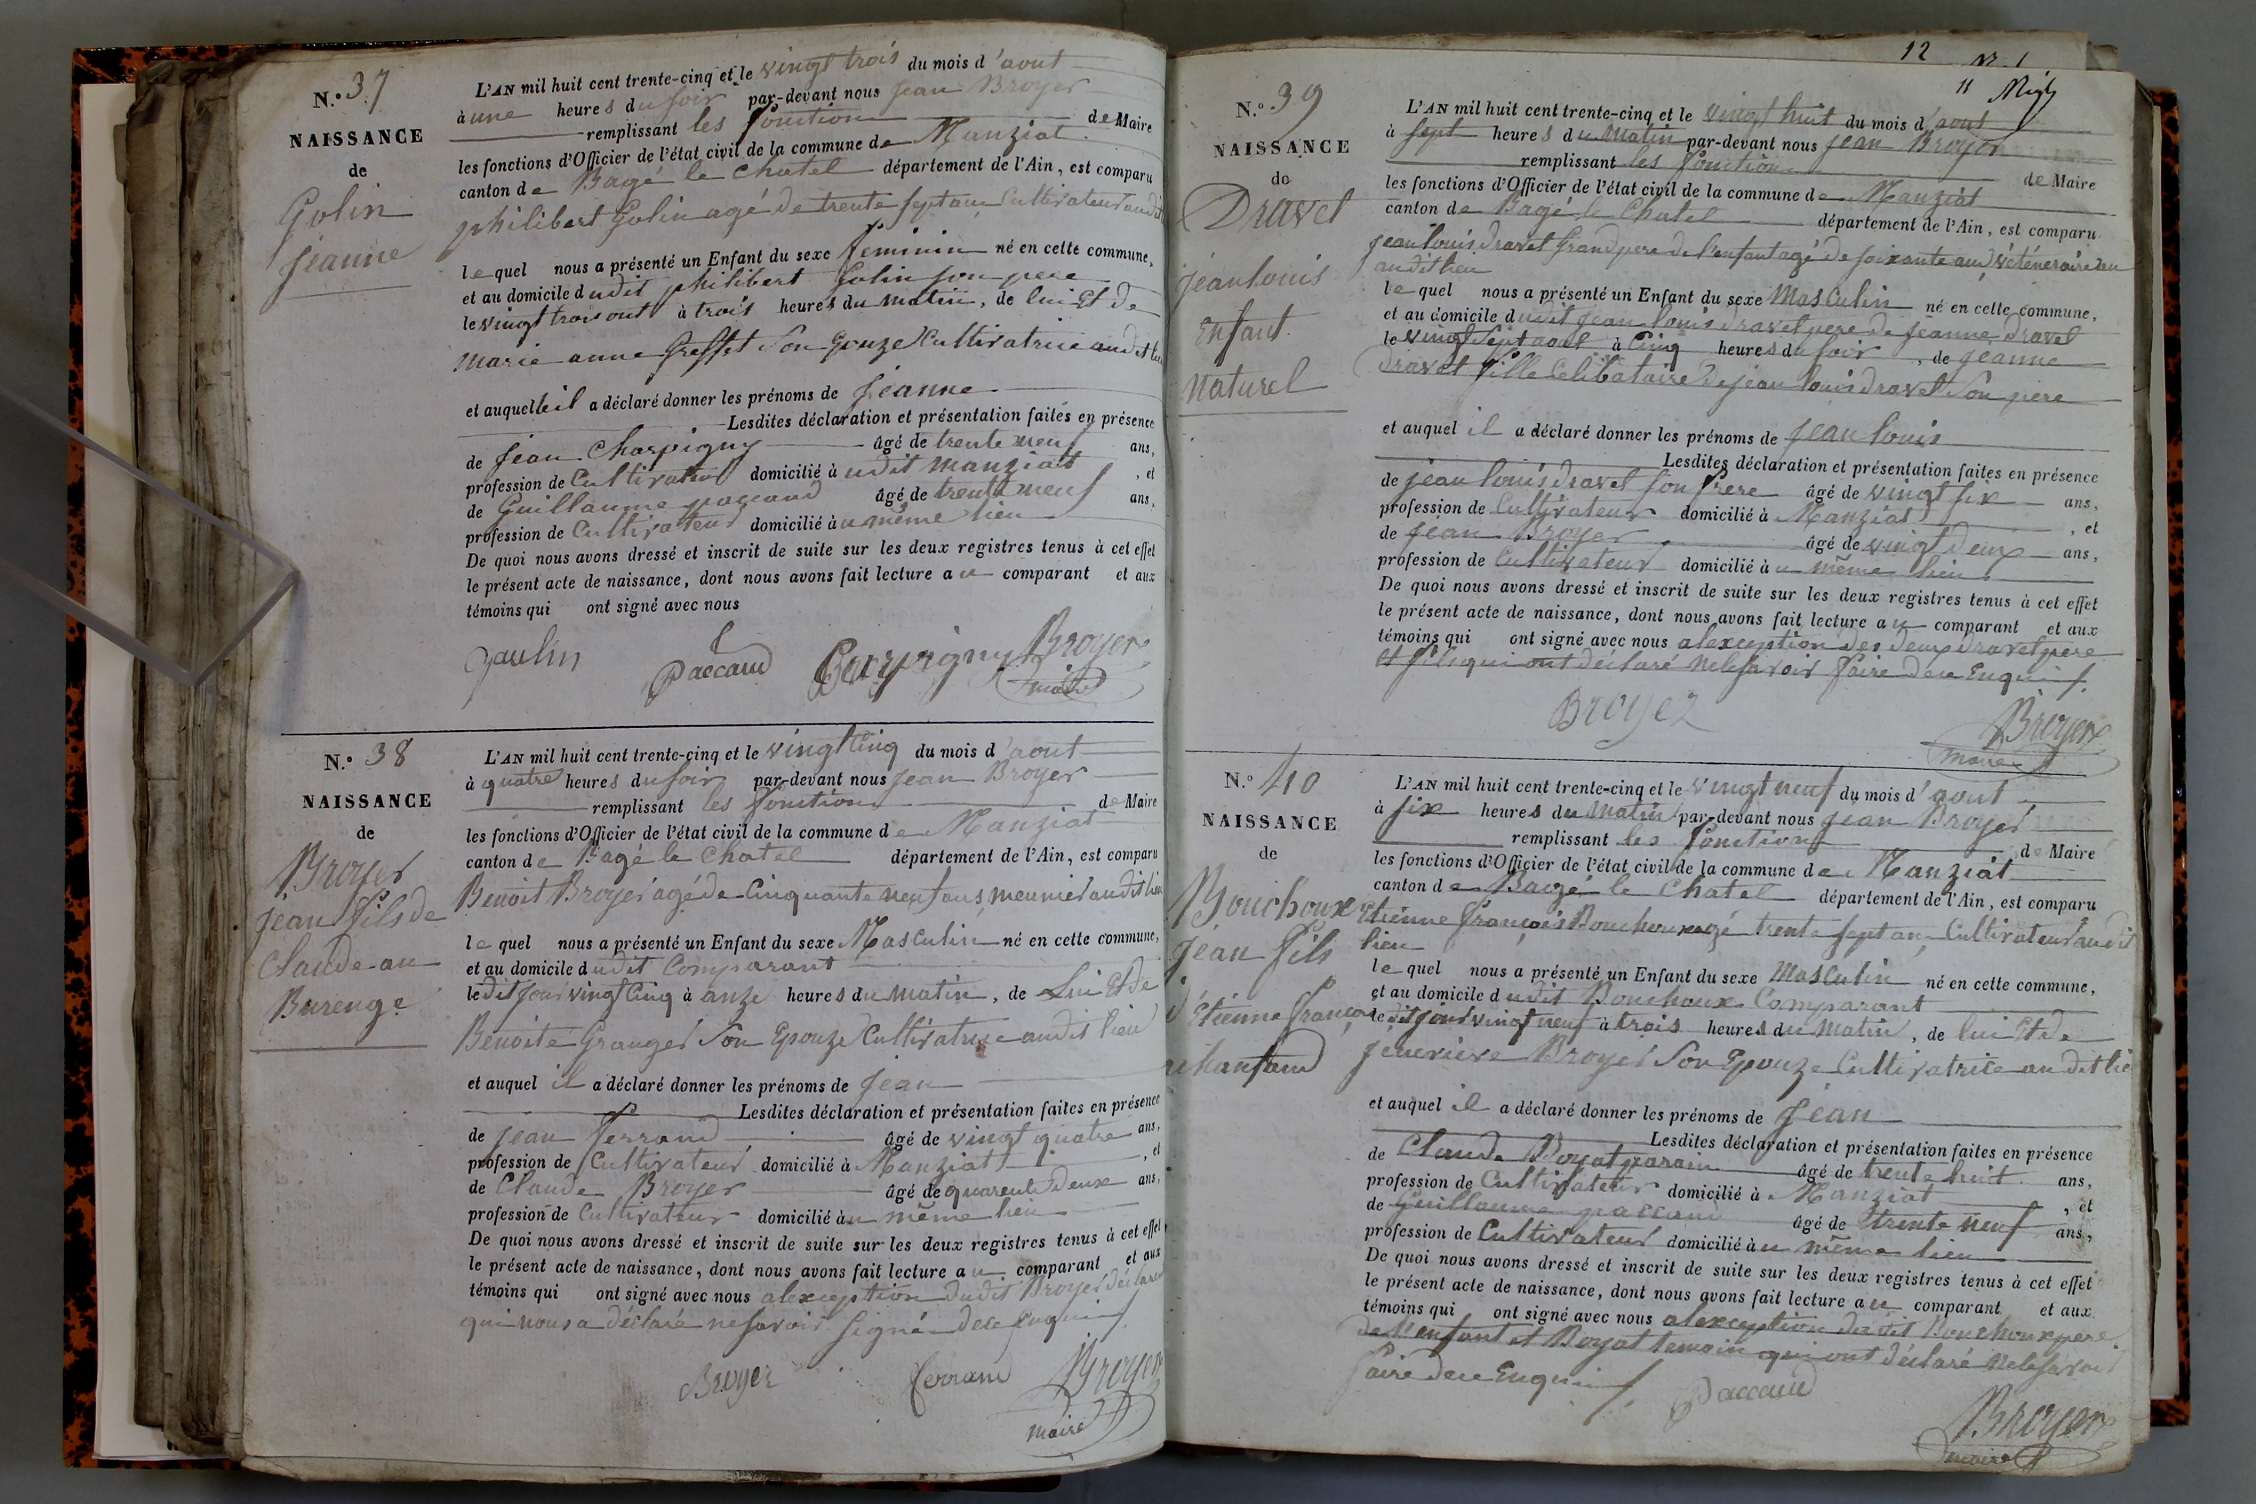 N.° 37
NAISSANCE
de
Golin
Jeanne
L'AN mil huit cent trente-cinq et le vingt trois du mois d'aout
à une heures du soir par-devant nous Jean Broyer
remplissant les fonction de Maire
les fonctions d'Officier de l'état civil de la commune de Manziat
canton de Bagé le Chatel département de l'Ain, est comparu
philibert Golin agé de trente sept ans Cultivateur audit
lequel nous a présenté un Enfant du sexe feminin né en cette commune,
et au domicile dudit philibert Golin son pere
le vingt trois out à trois heures du matin, de lui Et de
marie anne greffet Son Epouze Cultivatrice audit lieu
et auquelle il a déclaré donner les prénoms de Jeanne
Lesdites déclaration et présentation faites en présence
de Jean Charpigny âgé de trente neuf ans,
profession de Cultivateur domicilié à udit manziat, et
de Guillaume paccaud âgé de trente neuf ans,
profession de Cultivateur domicilié à u même lieu
De quoi nous avons dressé et inscrit de suite sur les deux registres tenus à cet effet
le présent acte de naissance, dont nous avons fait lecture au comparant et aux
témoins qui ont signé avec nous
gaulin Paccaud Charpigny Broyer
maire
N.° 38
NAISSANCE
de
Broyer
jean fils de
Claude au
Burenge
L'AN mil huit cent trente-cinq et le vingt Cinq du mois d'aout
à quatre heures du soir par-devant nous Jean Broyer
remplissant les fonction de Maire
les fonctions d'Officier de l'état civil de la commune de Manziat
canton de Bagé le Chatel département de l'Ain, est comparu
Benoit Broyer agé de Cinquante neuf ans, meunier audit lieu
lequel nous a présenté un Enfant du sexe Masculin né en cette commune,
et au domicile dudit Comparant
le dit jour vingt Cinq à anze heures du matin, de Lui Et de
Benoite Granger Son Epouze Cultivatrice audit lieu
et auquel il a déclaré donner les prénoms de Jean
Lesdites déclaration et présentation faites en présence
de Jean ferrand âgé de vingt quatre ans,
profession de Cultivateur domicilié à Manziat, et
de Claude Broyer âgé de quarente Deux ans,
profession de Cultivateur domicilié à u même lieu
De quoi nous avons dressé et inscrit de suite sur les deux registres tenus à cet effet
le présent acte de naissance, dont nous avons fait lecture au comparant et aux
témoins qui ont signé avec nous alexception dudit Broyer déclarant
qui nous a déclaré ne savoir signé de ce Enquis
Broyer ferrand Broyer
maire
12
11
N.° 39
NAISSANCE
de
Dravet
jean louis
enfant
naturel
L'AN mil huit cent trente-cinq et le vingt huit du mois d'aout
à sept heures du matin par-devant nous Jean Broyer
remplissant les fonction de Maire
les fonctions d'Officier de l'état civil de la commune de Manziat
canton de Bagé le Chatel département de l'Ain, est comparu
jean louis dravet Grand pere de l'enfant agé de soixante ans véténeraire au
audit lieu
lequel nous a présenté un Enfant du sexe Masculin né en cette commune,
et au domicile dudit jean louis dravet pere de jeanne dravet
le vingt Sept aout à Cinq heures du soir, de jeanne
Dravet fille Celibataire de jean louis dravet Son pere
et auquel il a déclaré donner les prénoms de jean louis
Lesdites déclaration et présentation faites en présence
de jean louis dravet son frere âgé de vingt six ans,
profession de Cultivateur domicilié à Manziat, et
de Jean Broyer âgé de vingt deux ans,
profession de Cultivateur domicilié à u même lieu
De quoi nous avons dressé et inscrit de suite sur les deux registres tenus à cet effet
le présent acte de naissance, dont nous avons fait lecture au comparant et aux
témoins qui ont signé avec nous alexception des deux dravet pere
et fils qui ont déclaré ne le savoir faire de ce Enquis
Broyer Broyer
maire
N.° 40
NAISSANCE
de
Bouchoux
jean fils
d'Etienne françois
L'AN mil huit cent trente-cinq et le vingt neuf du mois d'aout
à six heures du matin par-devant nous jean Broyer
remplissant les fonction de Maire
les fonctions d'Officier de l'état civil de la commune de Manziat
canton de Bagé le Chatel département de l'Ain, est comparu
Etienne françois Bouchoux agé trente sept ans Cultivateur audit
lieu
lequel nous a présenté un Enfant du sexe Masculin né en cette commune,
et au domicile dudit Bouchoux Comparant
le dit jour vingt neuf à trois heures du matin, de lui Et de
jeneviève Broyer Son Epouze Cultivatrice audit lie
et auquel il a déclaré donner les prénoms de Jean
Lesdites déclaration et présentation faites en présence
de Claude Boyat parain âgé de trente huit ans,
profession de Cultivateur domicilié à Manziat, et
de Guillaume paccaud âgé de trente neuf ans,
profession de Cultivateur domicilié à u même lieu
De quoi nous avons dressé et inscrit de suite sur les deux registres tenus à cet effet
le présent acte de naissance, dont nous avons fait lecture au comparant et aux
témoins qui ont signé avec nous alexception dudit Bouchoux pere
de l'enfant et Boyat temoin qui ont déclaré ne le savoir
faire de ce Enquis
Paccaud Broyer
maire